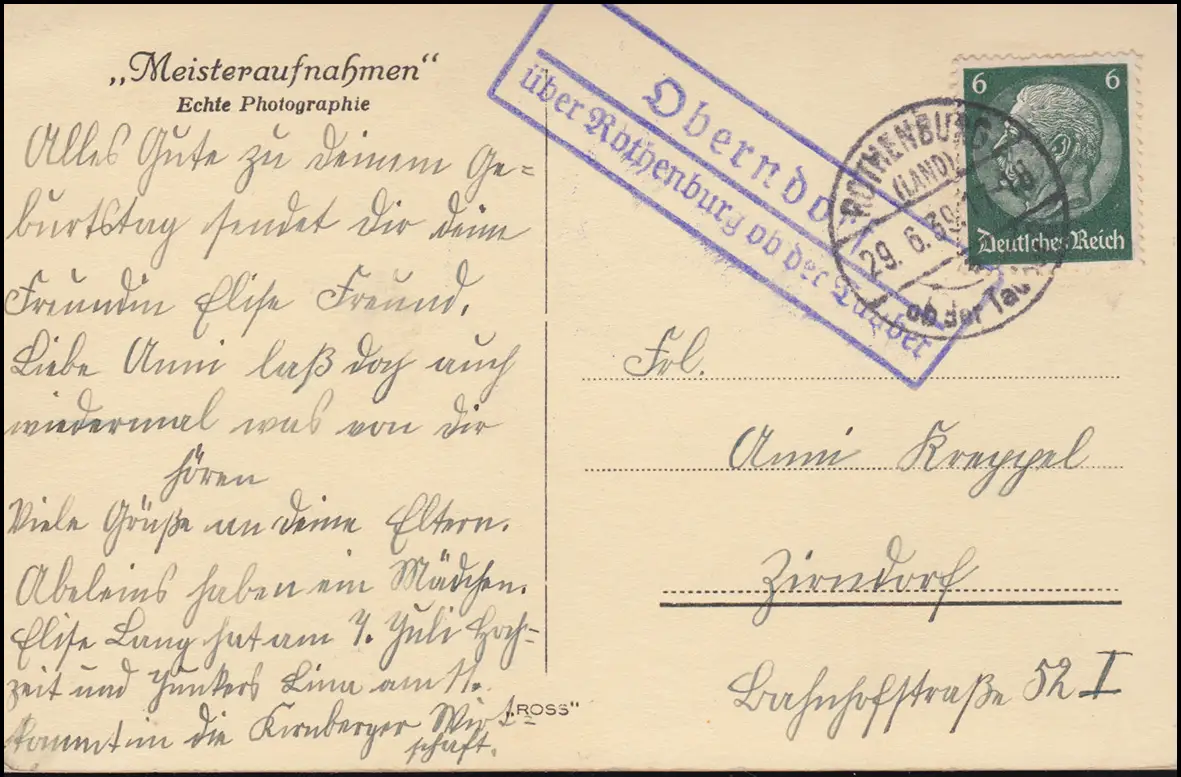 „Meisteraufnahmen“
Echte Photographie
Alles Gute zu deinem Ge=
burtstag sendet dir deine
Freundin Elise Freund.
Liebe Anni laß doch auch
wiedermal was von dir
hören
Viele Grüße an deine Eltern.
Abeleins haben ein Mädchen.
Elise Lang hat am 7. Juli Hoch=
zeit und Junkers Lina am 11.
kommt in die Kirnberger Wirt=
schaft.
„ROSS“
Oberndo
über Rothenburg ob der Tauber
ROTHENBURG
(LAND)
29. 6. 39
ob der Tau
6 6
Deutsches Reich
Frl.
Anni Kreppel
Zirndorf
Bahnhofstraße 52 I